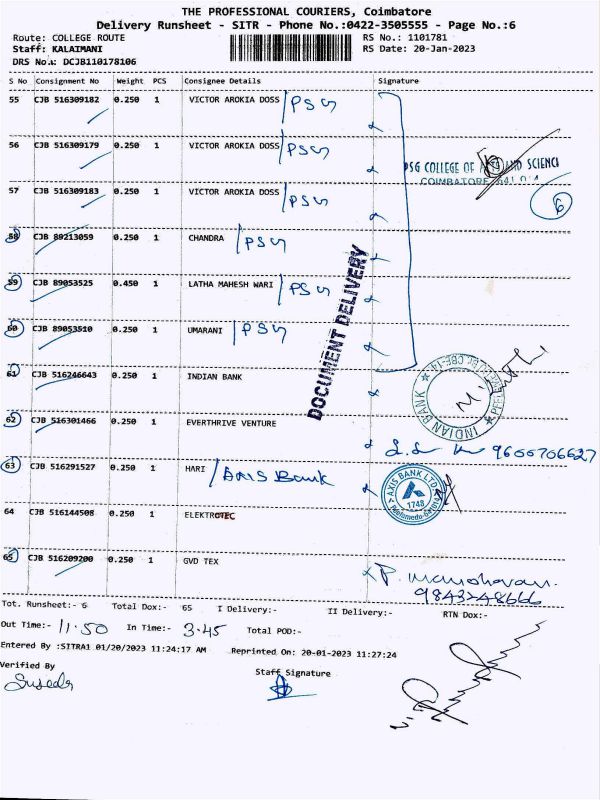 THE PROFESSIONAL COURIERS, Coimbatore
Delivery Runsheet - SITR - Phone No.:0422-3505555 - Page No.:6
Route: COLLEGE ROUTE RS No.: 1101781
Staff: KALAIMANI RS Date: 20-Jan-2023
DRS No.: DCJB110178106
S No Consignment No Weight PCS Consignee Details Signature
55 CJB 516309182 0.250 1 VICTOR AROKIA DOSS PSG
56 CJB 516309179 0.250 1 VICTOR AROKIA DOSS PSG
PSG COLLEGE OF
COIMBATORE
57 CJB 516309183 0.250 1 VICTOR AROKIA DOSS PSG
6
58 CJB 89213059 0.250 1 CHANDRA PSG
59 CJB 89053525 0.450 1 LATHA MAHESH WARI PSG
DOCUMENT DELIVERY
60 CJB 89053510 0.250 1 UMARANI PSG
61 CJB 516246643 0.250 1 INDIAN BANK
INDIAN BANK
62 CJB 516301466 0.250 1 EVERTHRIVE VENTURE
9600706627
63 CJB 516291527 0.250 1 HARI AXIS Bank
AXIS BANK LTD
1748
64 CJB 516144508 0.250 1 ELEKTROTEC
65 CJB 516209200 0.250 1 GVD TEX
P. Manoharan
9843248666
Tot. Runsheet:- 6 Total Dox:- 65 I Delivery:- II Delivery:- RTN Dox:-
Out Time:- 11.50 In Time:- 3.45 Total POD:-
Entered By :SITRA1 01/20/2023 11:24:17 AM Reprinted On: 20-01-2023 11:27:24
Verified By Staff Signature